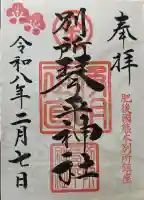 奉拝
肥後國熊本別所鎮座
別所琴平神社
令和八年二月七日